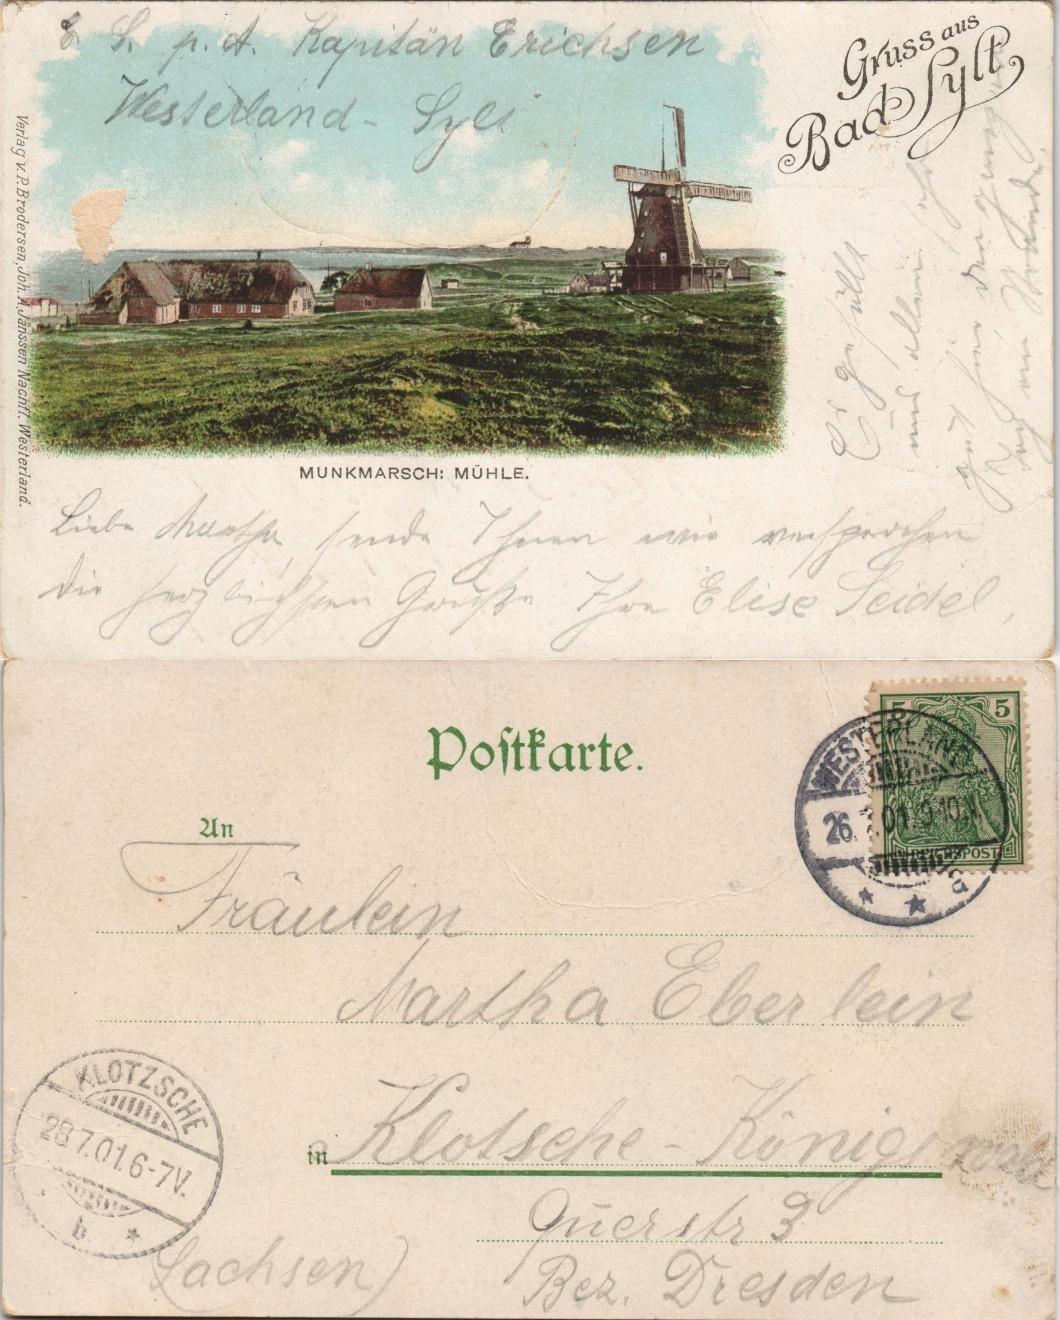 E. S. p. A. Kapitän Erichsen
Westerland - Sylt
Gruss aus
Bad Sylt
Verlag v. P. Brodersen, Joh. A. Janssen Nachfl. Westerland.
MUNKMARSCH: MÜHLE.
Liebe Martha, sende Ihnen wie versprochen
die herzlichsten Grüße Ihre Elise Seidel,
Es gefällt
und allen sehr
gut hier
Postkarte.
5 5
REICHSPOST
WESTERLAND
26.7.01.9-10.V.
a
An
Fräulein
Martha Eberlein
in Klotsche - Königswald
Querstr 3
Bez. Dresden
(Sachsen)
KLOTZSCHE
28.7.01.6-7V.
b